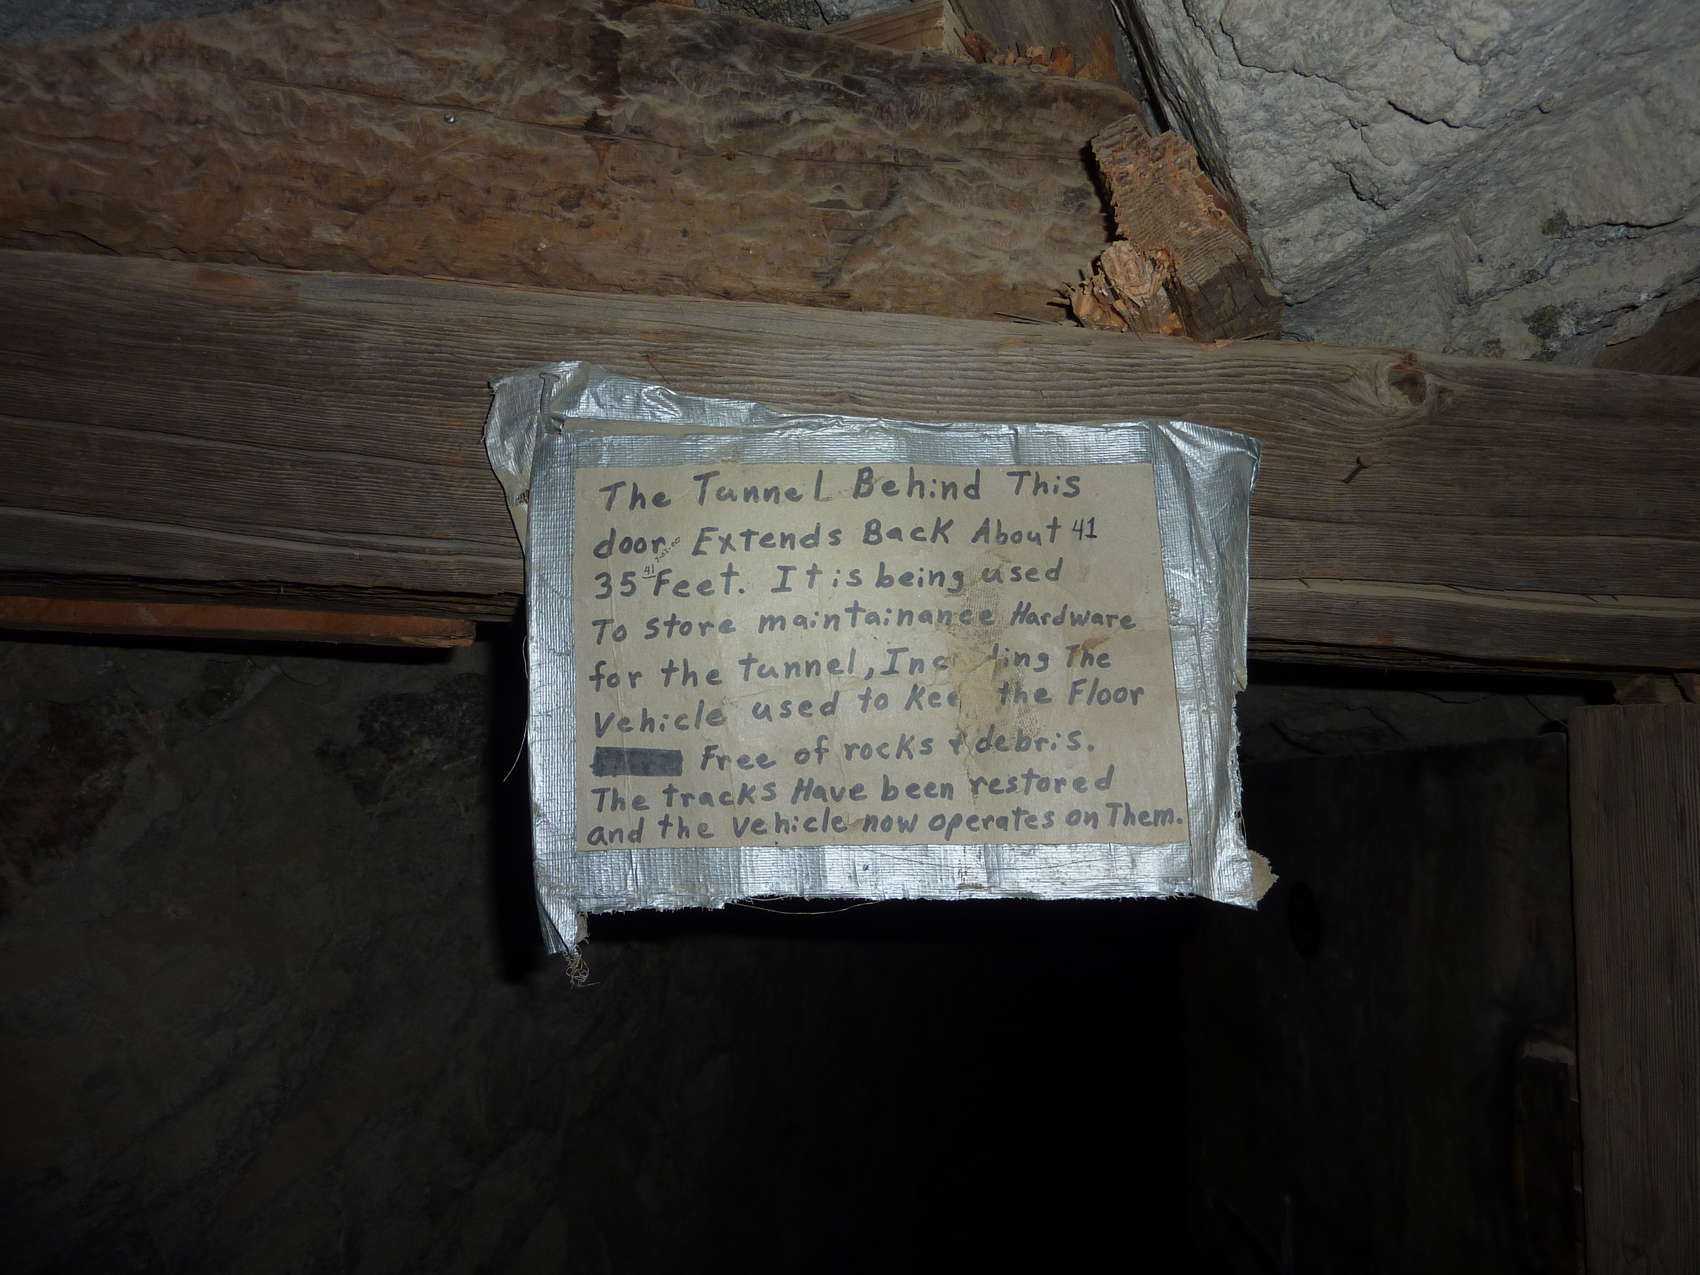 The Tunnel Behind This
door Extends Back About 41
35 41 Feet. It is being used
To store maintainance Hardware
for the tunnel, The
vehicle used to the Floor
Free of rocks & debris.
The tracks Have been restored
and the vehicle now operates on Them.